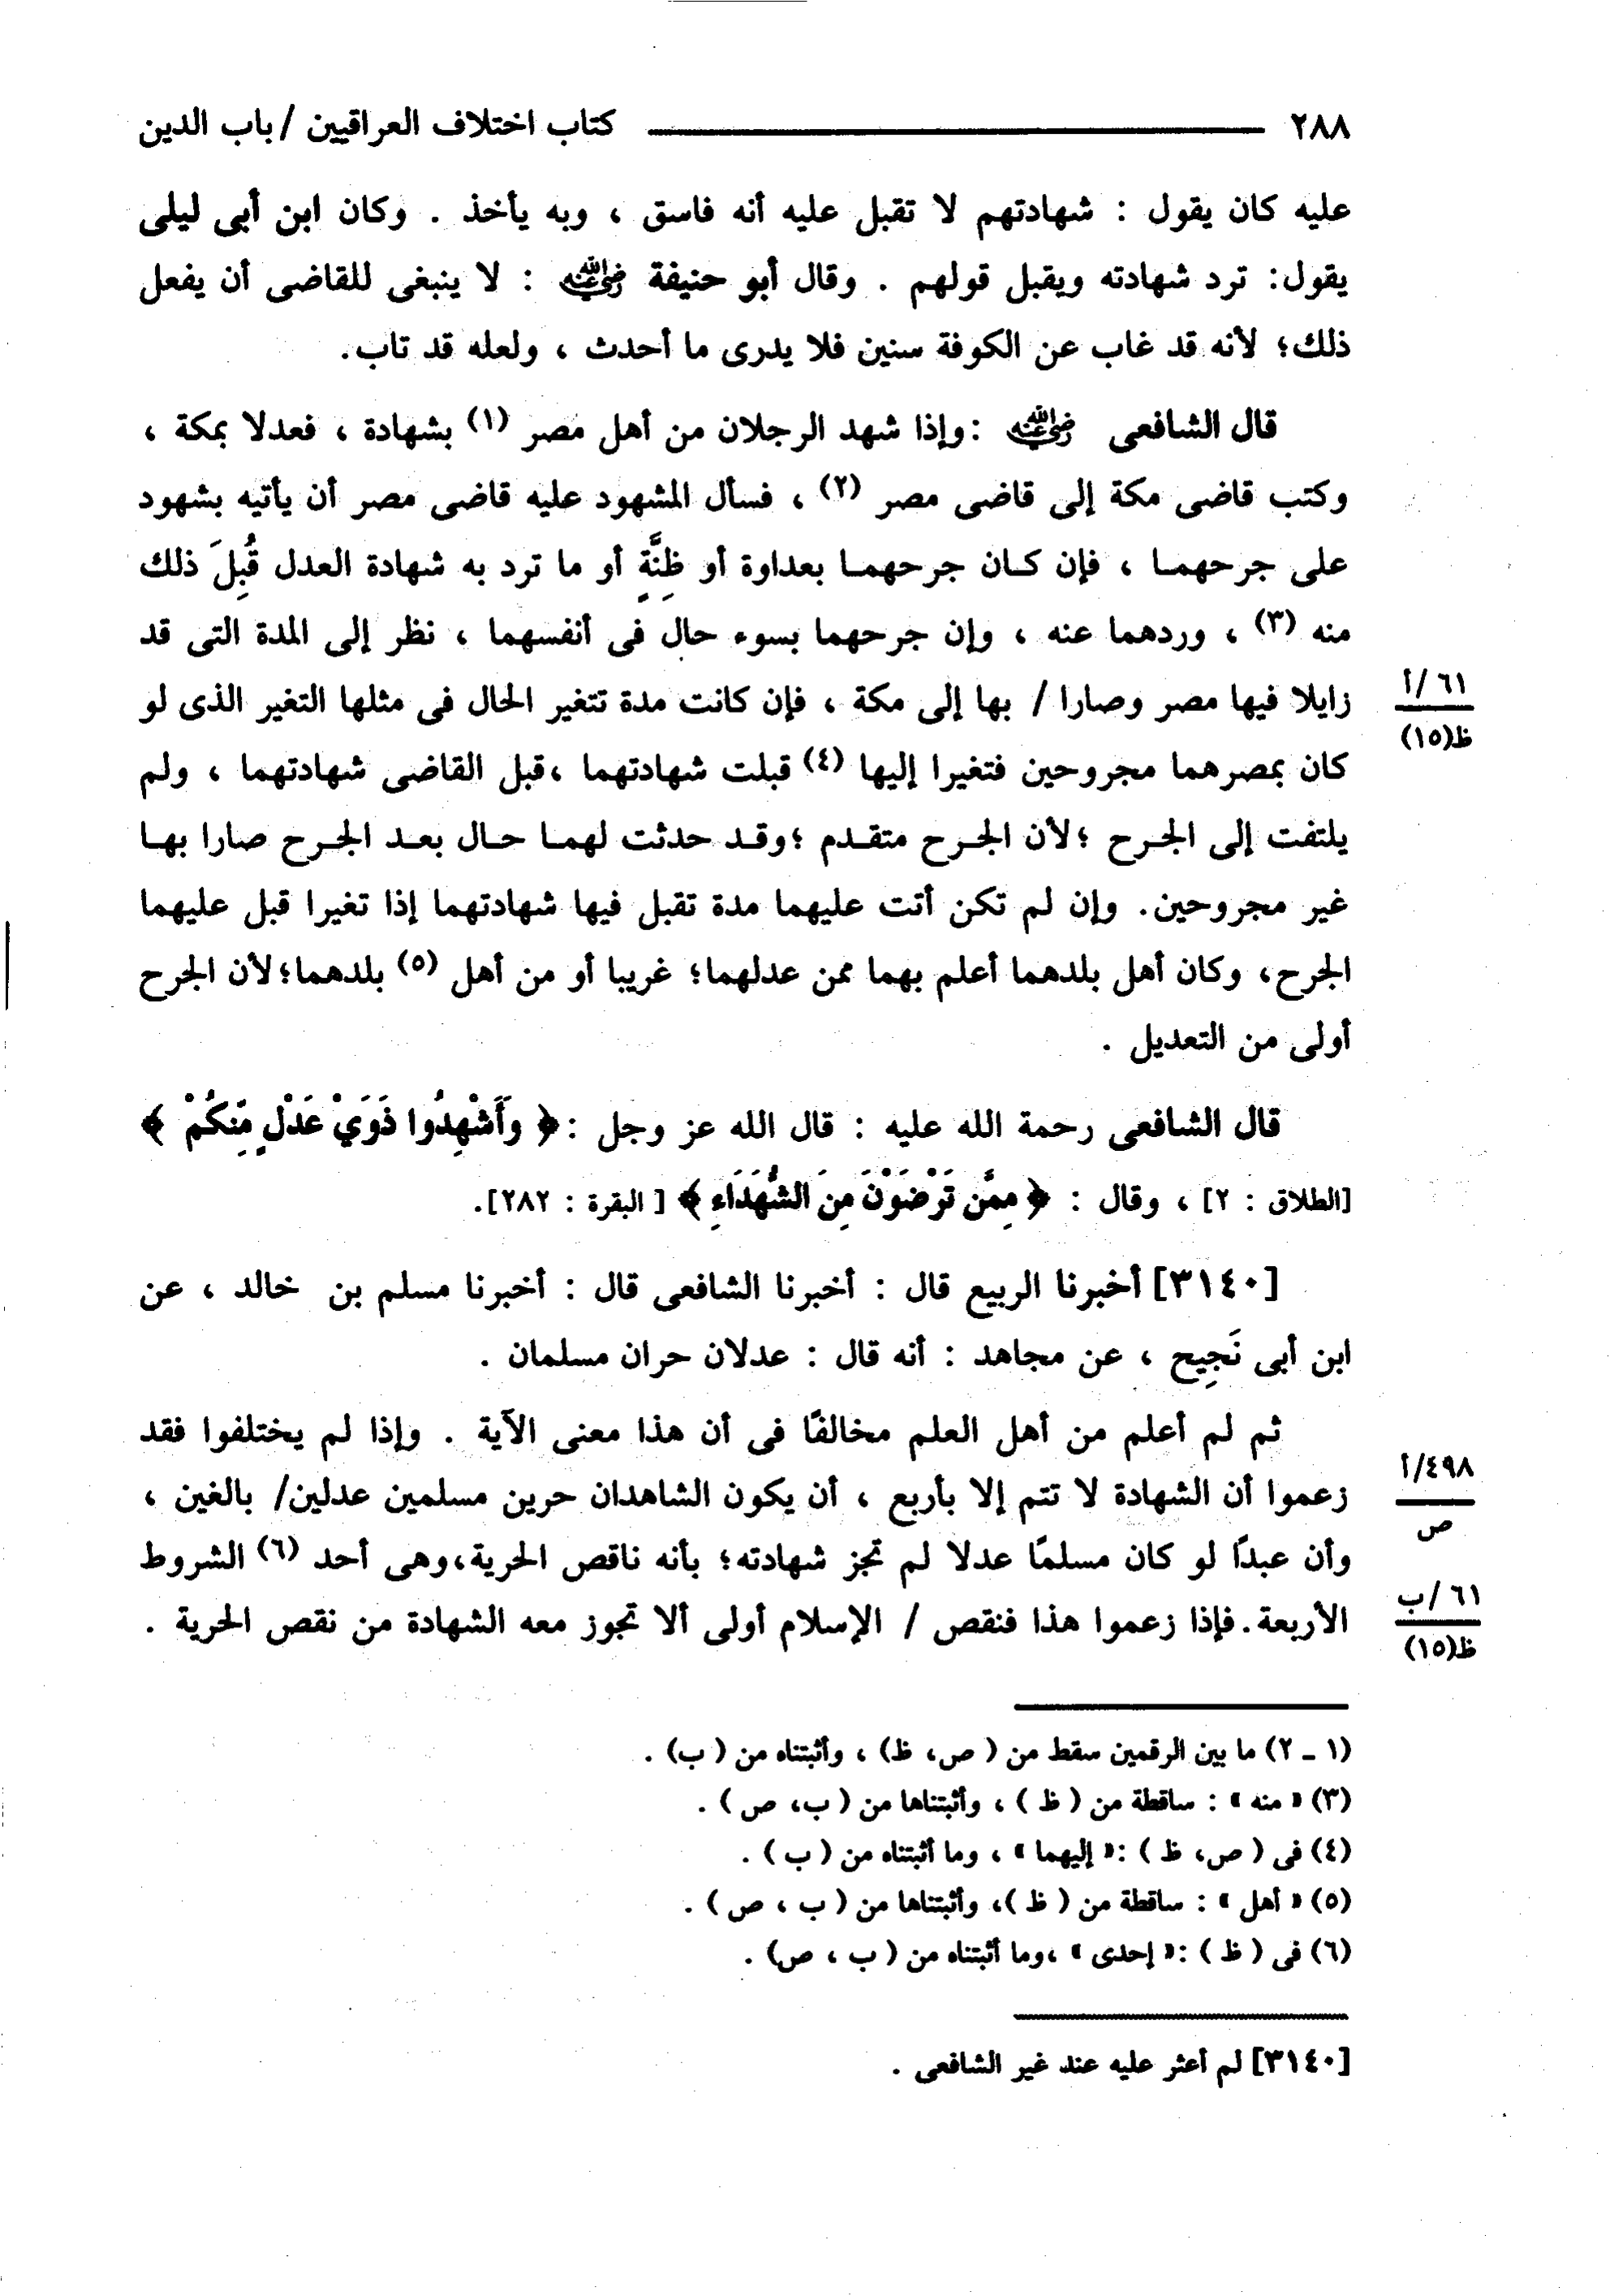 ٢٨٨ كتاب اختلاف العراقيين / باب الدين
عليه كان يقول : شهادتهم لا تقبل عليه أنه فاسق ، وبه يأخذ . وكان ابن أبى ليلى
يقول: ترد شهادته ويقبل قولهم . وقال أبو حنيفة رضي الله عنه : لا ينبغى للقاضى أن يفعل
ذلك؛ لأنه قد غاب عن الكوفة سنين فلا يدرى ما أحدث ، ولعله قد تاب.
قال الشافعى رضي الله عنه :وإذا شهد الرجلان من أهل مصر (١) بشهادة ، فعدلا بمكة ،
وكتب قاضى مكة إلى قاضى مصر (٢) ، فسأل المشهود عليه قاضى مصر أن يأتيه بشهود
على جرحهما ، فإن كان جرحهما بعداوة أو ظِنَّةٍ أو ما ترد به شهادة العدل قُبِلَ ذلك
منه (٣) ، وردهما عنه ، وإن جرحهما بسوء حال فى أنفسهما ، نظر إلى المدة التى قد
زايلا فيها مصر وصارا / بها إلى مكة ، فإن كانت مدة تتغير الحال فى مثلها التغير الذى لو
٦١/أ
ظ(١٥)
كان بمصرهما مجروحين فتغيرا إليها (٤) قبلت شهادتهما ،قبل القاضى شهادتهما ، ولم
يلتفت إلى الجرح ؛لأن الجرح متقدم ؛وقد حدثت لهما حال بعد الجرح صارا بها
غير مجروحين. وإن لم تكن أتت عليهما مدة تقبل فيها شهادتهما إذا تغيرا قبل عليهما
الجرح، وكان أهل بلدهما أعلم بهما ممن عدلهما؛ غريبا أو من أهل (٥) بلدهما؛لأن الجرح
أولى من التعديل .
قال الشافعى رحمة الله عليه : قال الله عز وجل :﴿ وَأَشْهِدُوا ذَوَيْ عَدْلٍ مِّنكُمْ ﴾
[الطلاق : ٢] ، وقال : ﴿ مِمَّن تَرْضَوْنَ مِنَ الشُّهَدَاءِ ﴾ [ البقرة : ٢٨٢].
[٣١٤٠] أخبرنا الربيع قال : أخبرنا الشافعى قال : أخبرنا مسلم بن خالد ، عن
ابن أبى نَجِيح ، عن مجاهد : أنه قال : عدلان حران مسلمان .
ثم لم أعلم من أهل العلم مخالفًا فى أن هذا معنى الآية . وإذا لم يختلفوا فقد
زعموا أن الشهادة لا تتم إلا بأربع ، أن يكون الشاهدان حرين مسلمين عدلين/ بالغين ،
٤٩٨/أ
ص
وأن عبدًا لو كان مسلمًا عدلا لم تجز شهادته؛ بأنه ناقص الحرية،وهى أحد (٦) الشروط
الأربعة.فإذا زعموا هذا فنقص / الإسلام أولى ألا تجوز معه الشهادة من نقص الحرية .
٦١/ب
ظ(١٥)
(١ ـ ٢) ما بين الرقمين سقط من ( ص، ظ) ، وأثبتناه من ( ب) .
(٣) « منه » : ساقطة من ( ظ ) ، وأثبتناها من ( ب، ص ) .
(٤) فى ( ص، ظ ) :« إليهما » ، وما أثبتناه من ( ب ) .
(٥) « أهل » : ساقطة من ( ظ )، وأثبتناها من ( ب ، ص ) .
(٦) فى ( ظ ) :« إحدى » ،وما أثبتناه من ( ب ، ص) .
[٣١٤٠] لم أعثر عليه عند غير الشافعى .